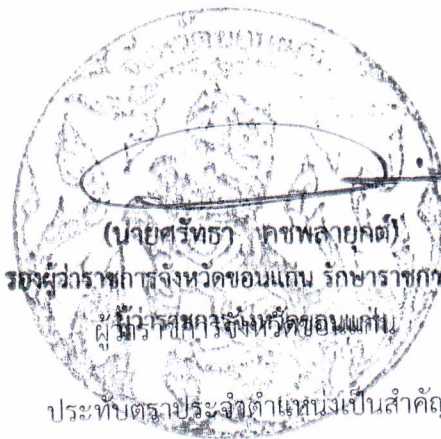 (นายศรัทธา คชพลายุกต์)
รองผู้ว่าราชการจังหวัดขอนแก่น รักษาราชกา
ผู้ว่าราชการจังหวัดขอนแก่น
ผู้ว่าราชการจังหวัดขอนแก่น
ประทับตราประจำตำแหน่งเป็นสำคัญ